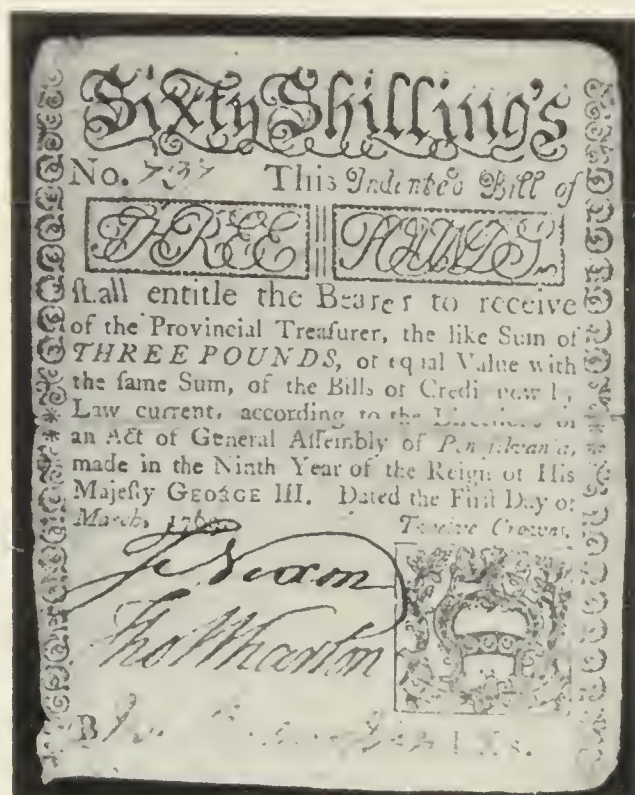 Sixty Shilling's
No. 737 This Indented Bill of
THREE POUNDS
ſhall entitle the Bearer to receive
of the Provincial Treaſurer, the like Sum of
THREE POUNDS, or equal Value with
the ſame Sum, of the Bills of Credit now by
Law current, according to the Directions of
an Act of General Aſſembly of Penſilvania,
made in the Ninth Year of the Reign of His
Majeſty GEORGE III. Dated the Firſt Day of
March, 1769. Twelve Crowns.
J Nixon
Tho Wharton
B